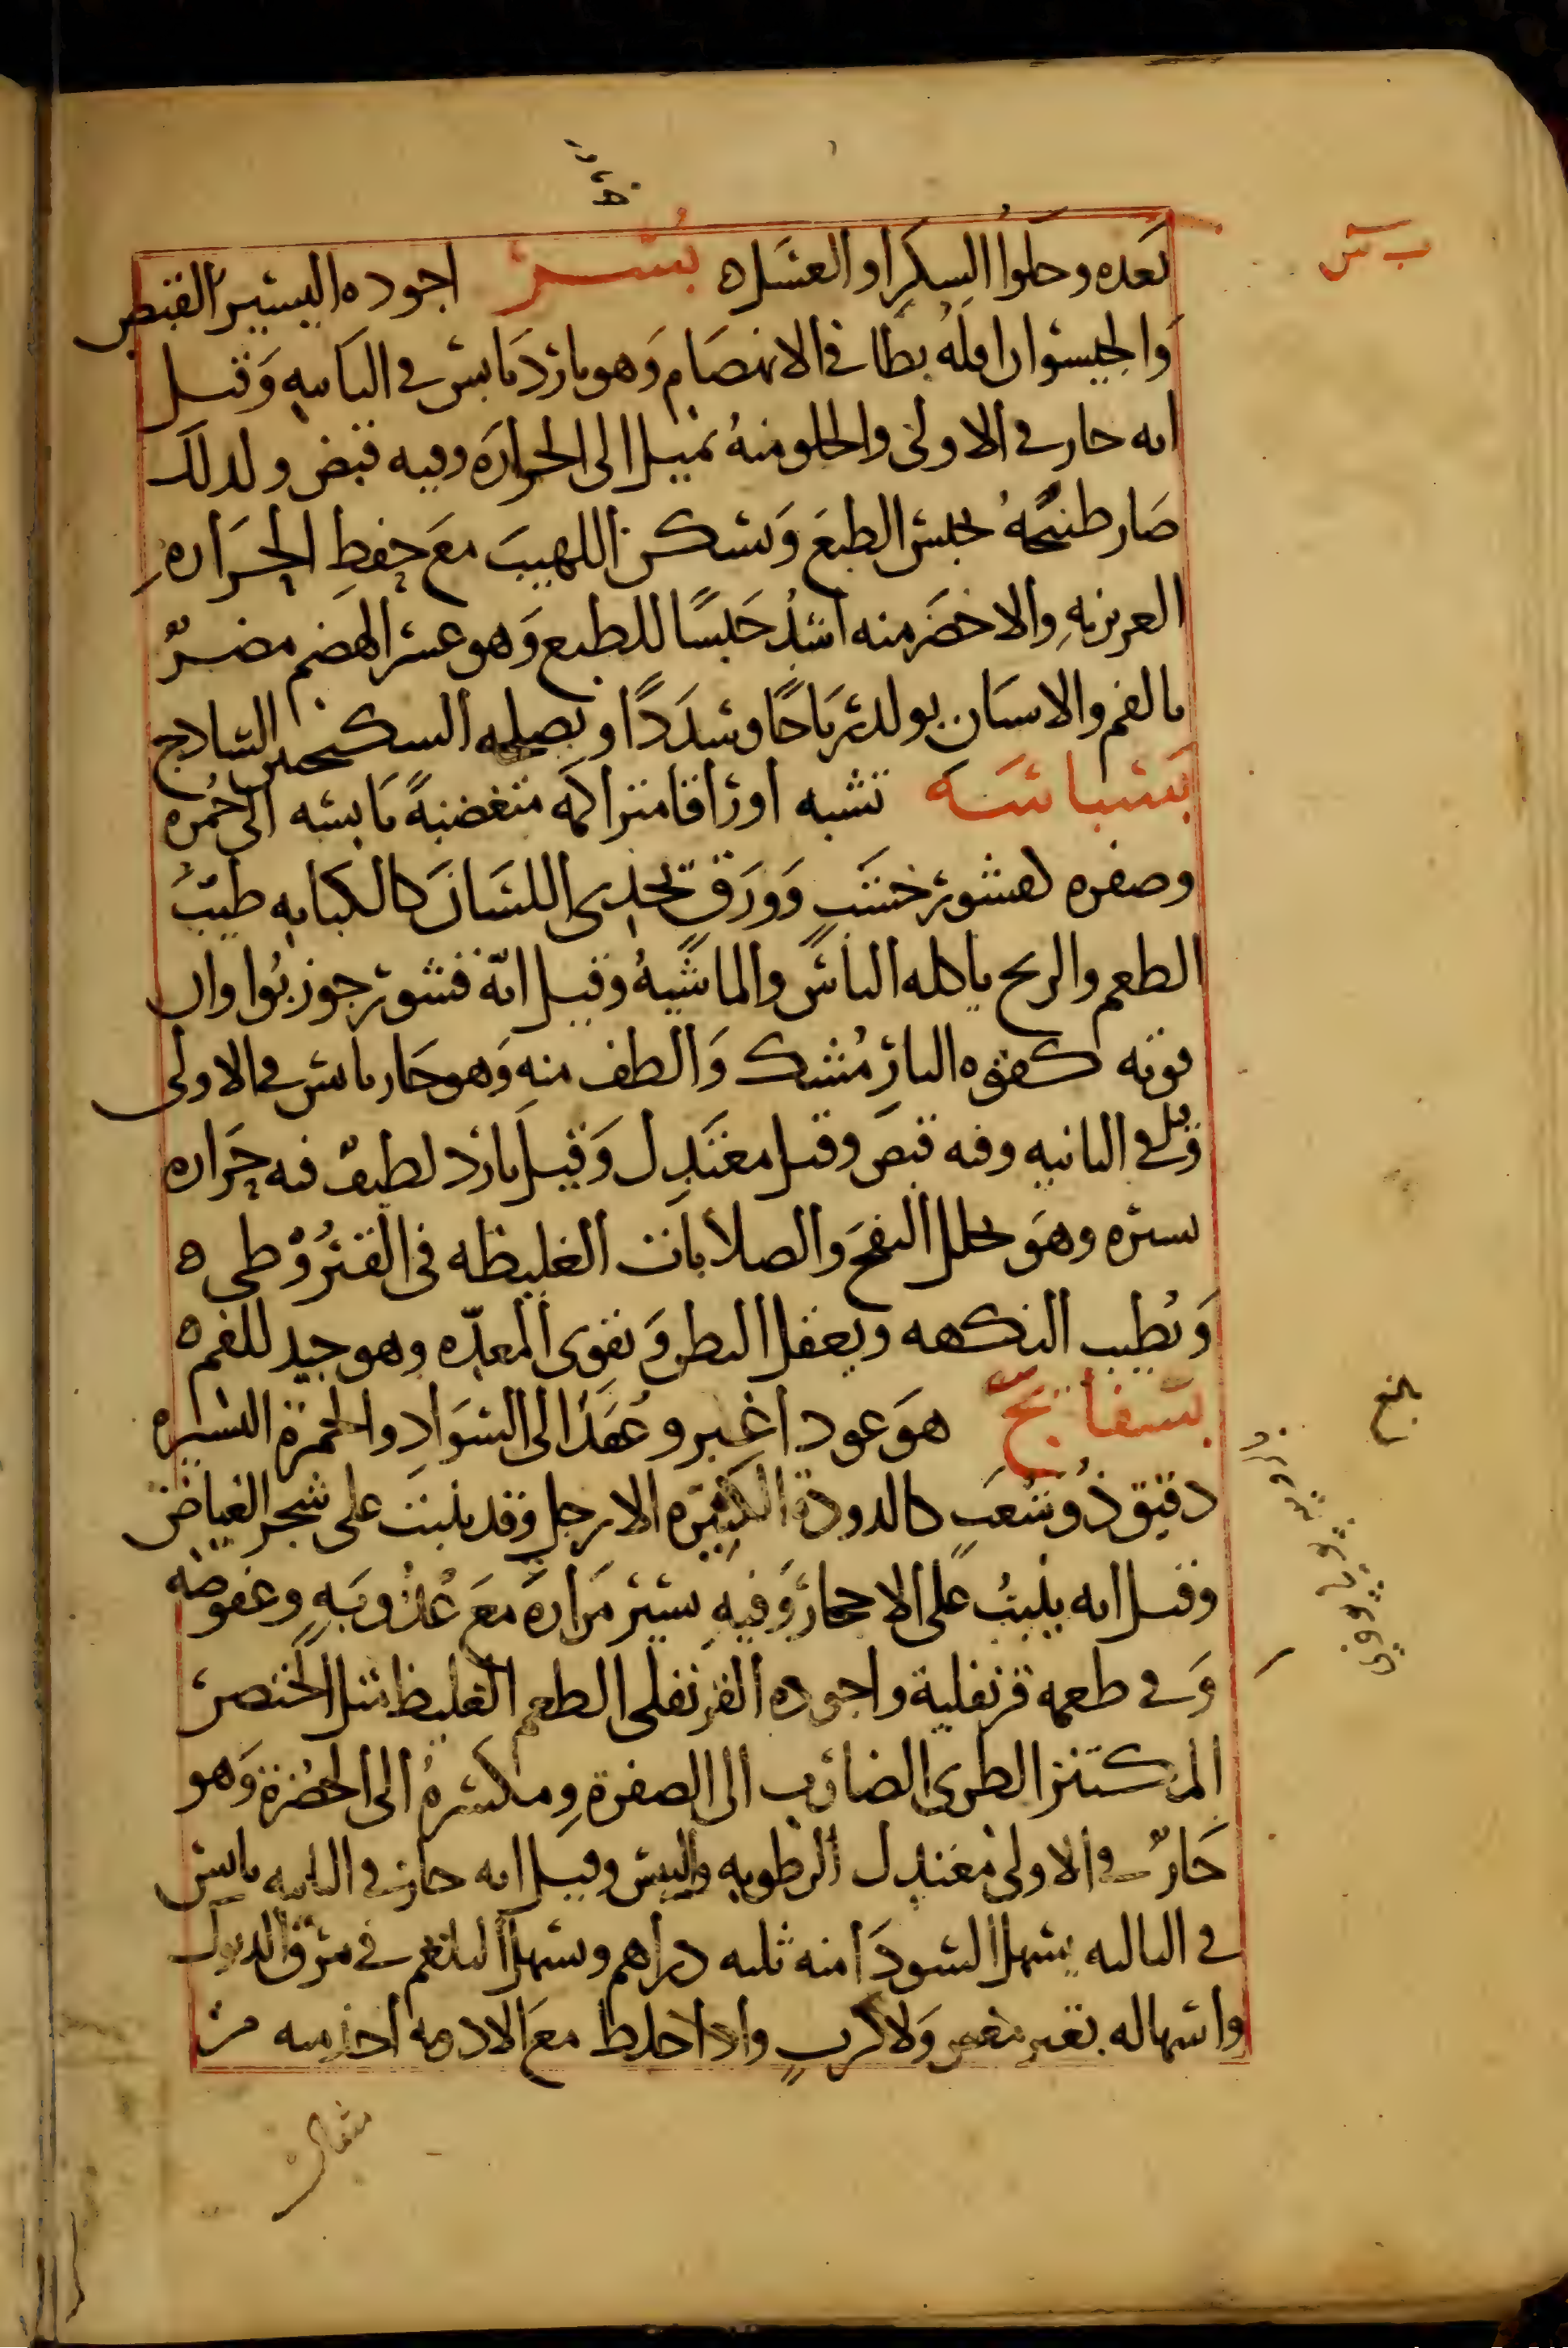 ب س
بعده وحلوا السكر او العسل ه بُسر اجوده اليسير القبض
والجيسوان اوله بطا في الانهضام وهو بارد يابس في الثانيه وقيل
انه حار في الاولى والحلو منه يميل الى الحرارة وفيه قبض ولذلك
صار طبيخه يحبس الطبع ويسكن اللهيب مع حفظ الحراره
الغريزيه والاخضر منه اشد حبسًا للطبع وهو عسر الهضم مضرّ
بالفم والاسنان يولد رياحًا وسددًا ويصلحه السكنجبين الساذج
بسباسه تشبه اوراقا متراكمه متغضنةً يابسه الى حُمره
وصفره كقشور خشبٍ وورق يحذى اللسان كالكبابه طيبُ
الطعم والريح ياكله الناس والماشيهُ وقيل انّه قشور جوز بُوا وان
قوته كقوه النارمُشك والطف منه وهو حار يابس في الاولى
وقيل في الثانيه وفيه قبض وقيل معتدل وقيل بارد لطيف فيه حراره
يسيره وهو يحلل النفخ والصلابات الغليظه في القيرُوطى ه
ويُطيب النكهه ويعقل البطن ويقوى المعدّه وهو جيد للفم ه
بسفايج هو عود اغبر وعقدٌ الى السواد والحمرة اليسيره
دقيق ذُو شُعَبٍ كالدودة الكثيره الارجل وقد ينبت على شجر الغياض
وقيل انه ينبتُ على الاحجار وفيه يسير مراره مع عُذوبه وعفوصه
وفي طعمه قرنفلية واجوده القرنفلى الطعم الغليظ مثل الخنصر
المكتنز الطرى الضارب الى الصفرة ومكسره الى الخضرة وهو
حارٌ في الاولى معتدل الرطوبه واليبس وقيل انه حار في الثانيه يابس
في الثالثه يسهل السودا منه ثلثه دراهم ويسهل البلغم في مرق الديوك
واسهاله بغير مغص ولا كربٍ واذا خلط مع الادويه اخذ منه من
مثقال